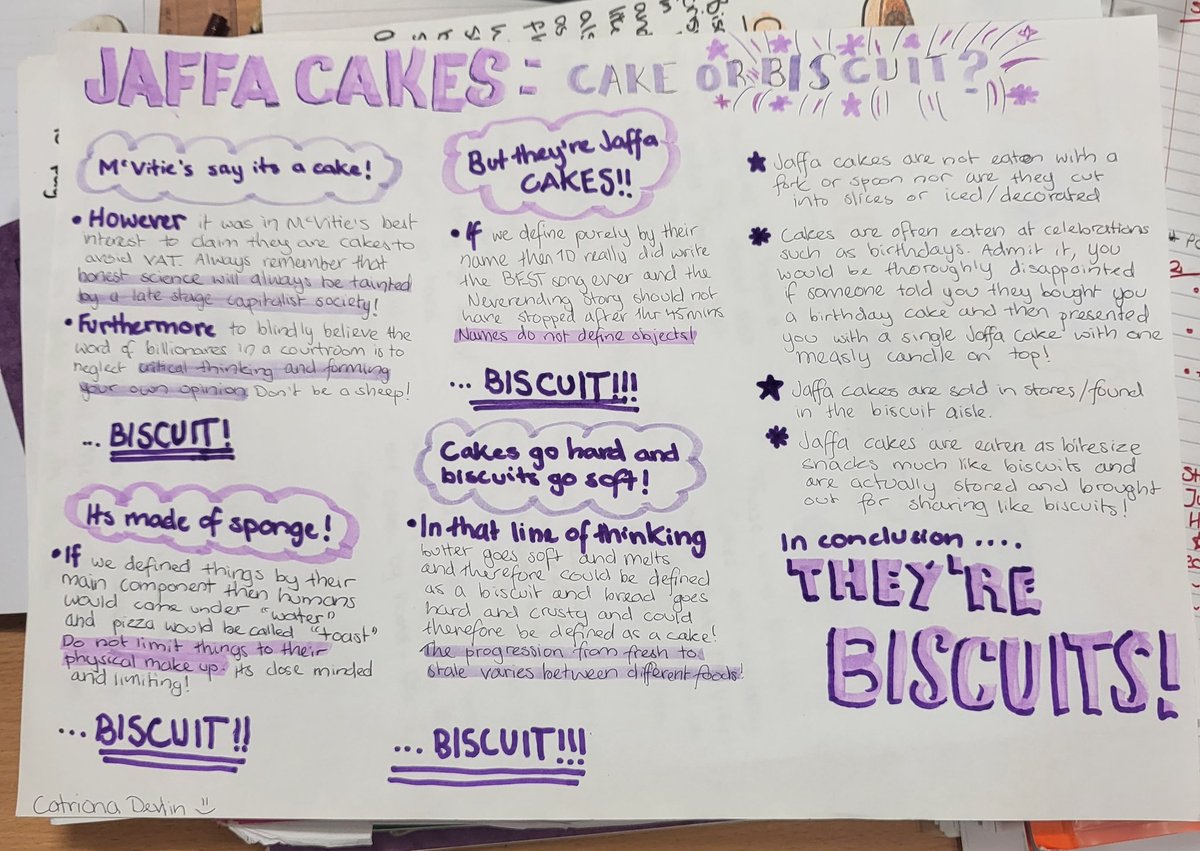 JAFFA CAKES: CAKE OR BISCUIT?
McVitie's say its a cake!
• However it was in McVitie's best
interest to claim they are cakes to
avoid VAT. Always remember that
honest science will always be tainted
by a late stage capitalist society!
• Furthermore to blindly believe the
word of billionares in a courtroom is to
neglect critical thinking and forming
your own opinion. Don't be a sheep!
... BISCUIT!
Its made of sponge!
• If we defined things by their
main component then humans
would come under "water"
and pizza would be called "toast"
Do not limit things to their
physical make up. its close minded
and limiting!
... BISCUIT!!
But they're Jaffa
CAKES!!
• If we define purely by their
name then 1D really did write
the BEST song ever and the
Neverending Story should not
have stopped after 1hr 45mins
Names do not define objects!
... BISCUIT!!!
Cakes go hard and
biscuits go soft!
• In that line of thinking
butter goes soft and melts
and therefore could be defined
as a biscuit and bread goes
hard and crusty and could
therefore be defined as a cake!
The progression from fresh to
stale varies between different foods!
... BISCUIT!!!
★ Jaffa cakes are not eaten with a
fork or spoon nor are they cut
into slices or iced/decorated
* Cakes are often eaten at celebrations
such as birthdays. Admit it, you
would be thoroughly disappointed
if someone told you they bought you
a birthday cake and then presented
you with a single Jaffa cake with one
measly candle on top!
★ Jaffa cakes are sold in stores/found
in the biscuit aisle.
* Jaffa cakes are eaten as bitesize
snacks much like biscuits and
are actually stored and brought
out for sharing like biscuits!
In conclusion ....
THEY'RE
BISCUITS!
Catriona Devlin